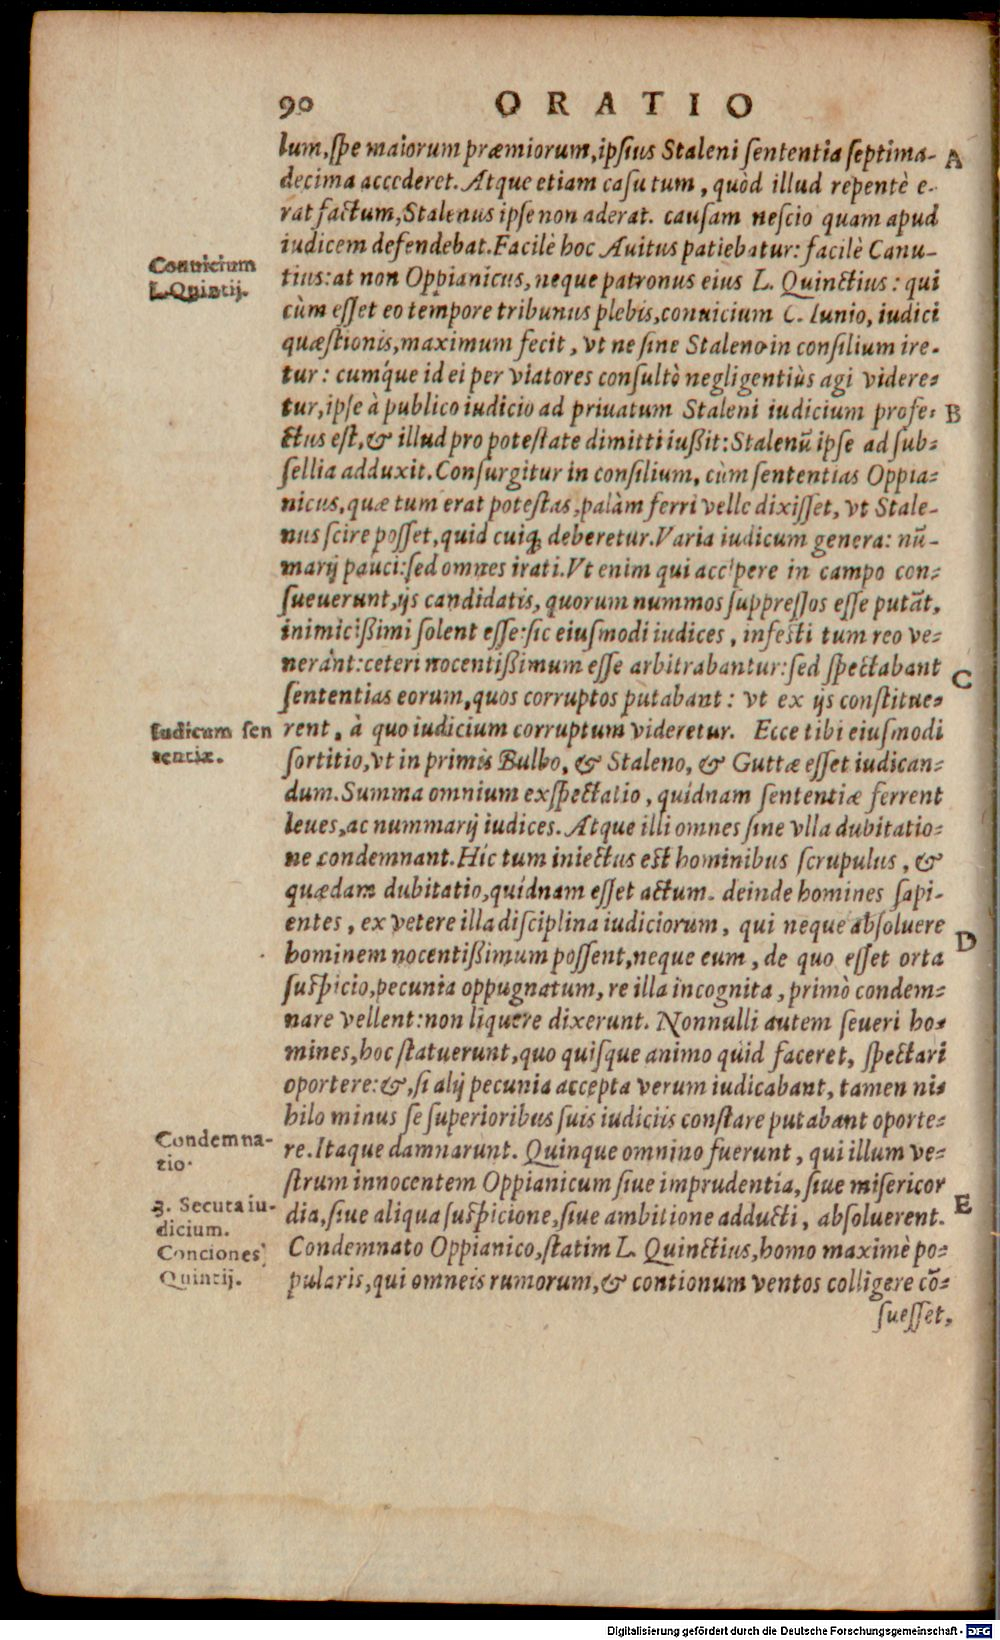 90 ORATIO
lum, ſpe maiorum præmiorum, ipſius Staleni ſententia ſeptima- A
decima accederet. Atque etiam caſu tum, quòd illud repentè e-
rat factum, Stalenus ipſe non aderat. cauſam neſcio quam apud
iudicem defendebat. Facilè hoc Auitus patiebatur: facilè Canu-
Conuicium
L. Quintij.
tius: at non Oppianicus, neque patronus eius L. Quinctius: qui
cùm eſſet eo tempore tribunus plebis, conuicium C. Iunio, iudici
quæſtionis, maximum fecit, vt ne ſine Staleno in conſilium ire-
tur: cumq́ue id ei per viatores conſultò negligentiùs agi videre-
tur, ipſe à publico iudicio ad priuatum Staleni iudicium profe- B
ctus eſt, & illud pro poteſtate dimitti iußit: Stalenū ipſe ad ſub-
ſellia adduxit. Conſurgitur in conſilium, cùm ſententias Oppia-
nicus, quæ tum erat poteſtas, palàm ferri velle dixiſſet, vt Stale-
nus ſcire poſſet, quid cuiq; deberetur. Varia iudicum genera: nū-
marij pauci: ſed omnes irati. Vt enim qui accipere in campo con-
ſueuerunt, ijs candidatis, quorum nummos ſuppreſſos eſſe putāt,
inimicißimi ſolent eſſe: ſic eiuſmodi iudices, infeſti tum reo ve-
nerant: ceteri nocentißimum eſſe arbitrabantur: ſed ſpectabant
ſententias eorum, quos corruptos putabant: vt ex ijs conſtitue- C
Iudicum ſen
tentiæ.
rent, à quo iudicium corruptum videretur. Ecce tibi eiuſmodi
ſortitio, vt in primis Bulbo, & Staleno, & Guttæ eſſet iudican-
dum. Summa omnium exſpectatio, quidnam ſententiæ ferrent
leues, ac nummarij iudices. Atque illi omnes ſine vlla dubitatio-
ne condemnant. Hic tum iniectus eſt hominibus ſcrupulus, &
quædam dubitatio, quidnam eſſet actum. deinde homines ſapi-
entes, ex vetere illa diſciplina iudiciorum, qui neque abſoluere
hominem nocentißimum poſſent, neque eum, de quo eſſet orta D
ſuſpicio, pecunia oppugnatum, re illa incognita, primò condem-
nare vellent: non liquere dixerunt. Nonnulli autem ſeueri ho-
mines, hoc ſtatuerunt, quo quiſque animo quid faceret, ſpectari
oportere: &, ſi alij pecunia accepta verum iudicabant, tamen ni-
hilo minus ſe ſuperioribus ſuis iudiciis conſtare putabant oporte-
Condemna-
tio.
re. Itaque damnarunt. Quinque omnino fuerunt, qui illum ve-
ſtrum innocentem Oppianicum ſiue imprudentia, ſiue miſericor
3. Secuta iu-
dicium.
Conciones
Quintij.
dia, ſiue aliqua ſuſpicione, ſiue ambitione adducti, abſoluerent. E
Condemnato Oppianico, ſtatim L. Quinctius, homo maximè po-
pularis, qui omneis rumorum, & contionum ventos colligere cō-
ſueſſet,
Digitalisierung gefördert durch die Deutsche Forschungsgemeinschaft - DFG